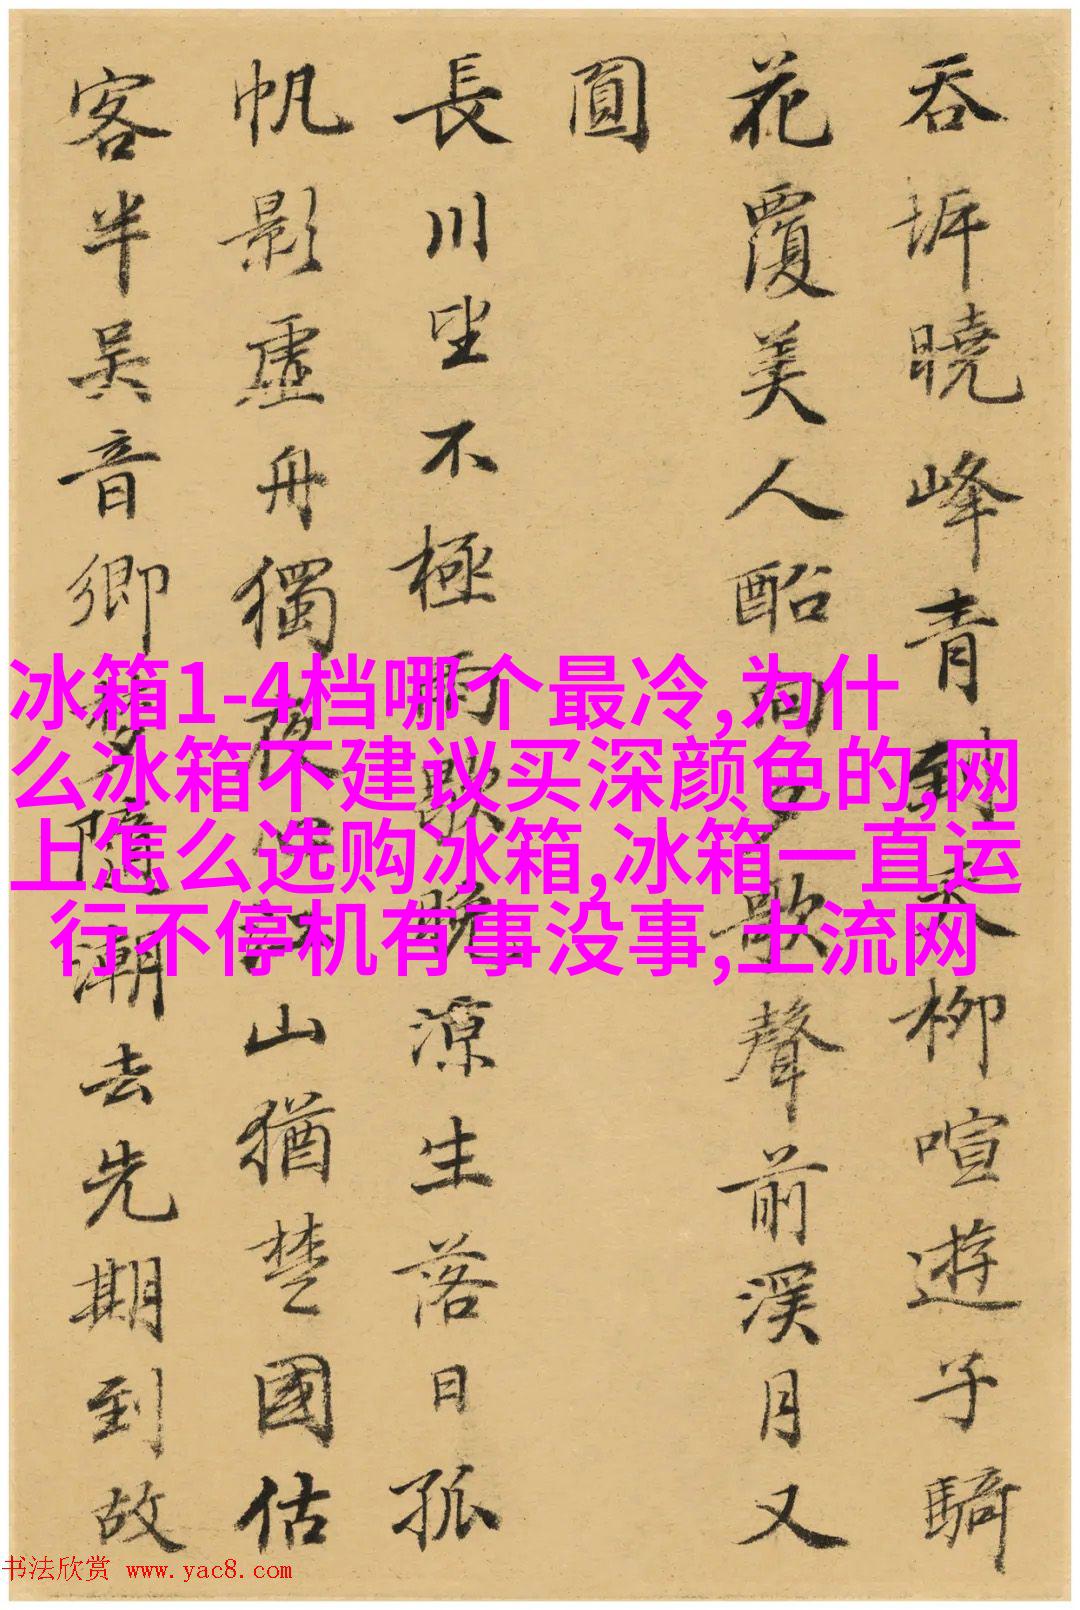 吞坼曉峰青 柳喧遊子騎
花覆美人船向夕歌聲前溪月又
圓
長川坐不極雨歇晚涼生落日孤
帆影虛舟獨夜江山猶楚國估
客半吳音鄉夢隨潮去先期到故
冰箱1-4档哪个最冷,为什
么冰箱不建议买深颜色的,网
上怎么选购冰箱,冰箱一直运
行不停机有事没事,上流网
书法欣赏 www.yac8.com